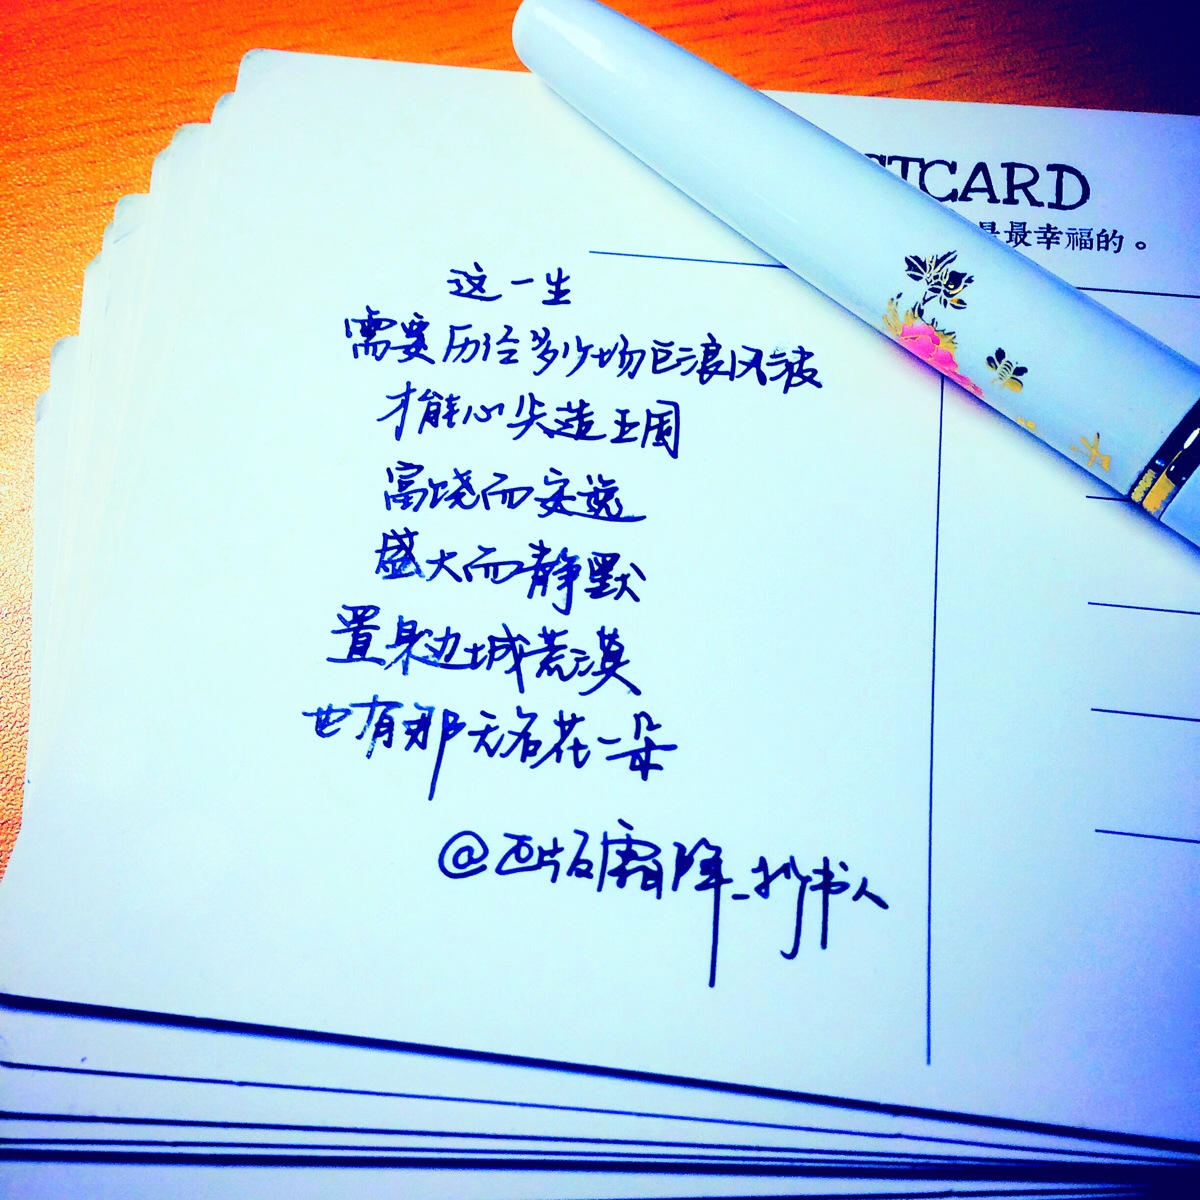 STCARD
是最幸福的。
这一生
需要历经多少场巨浪风波
才能心尖造王国
富饶而安逸
盛大而静默
置身边城荒漠
也有那无名花一朵
@西版霜降_抄书人